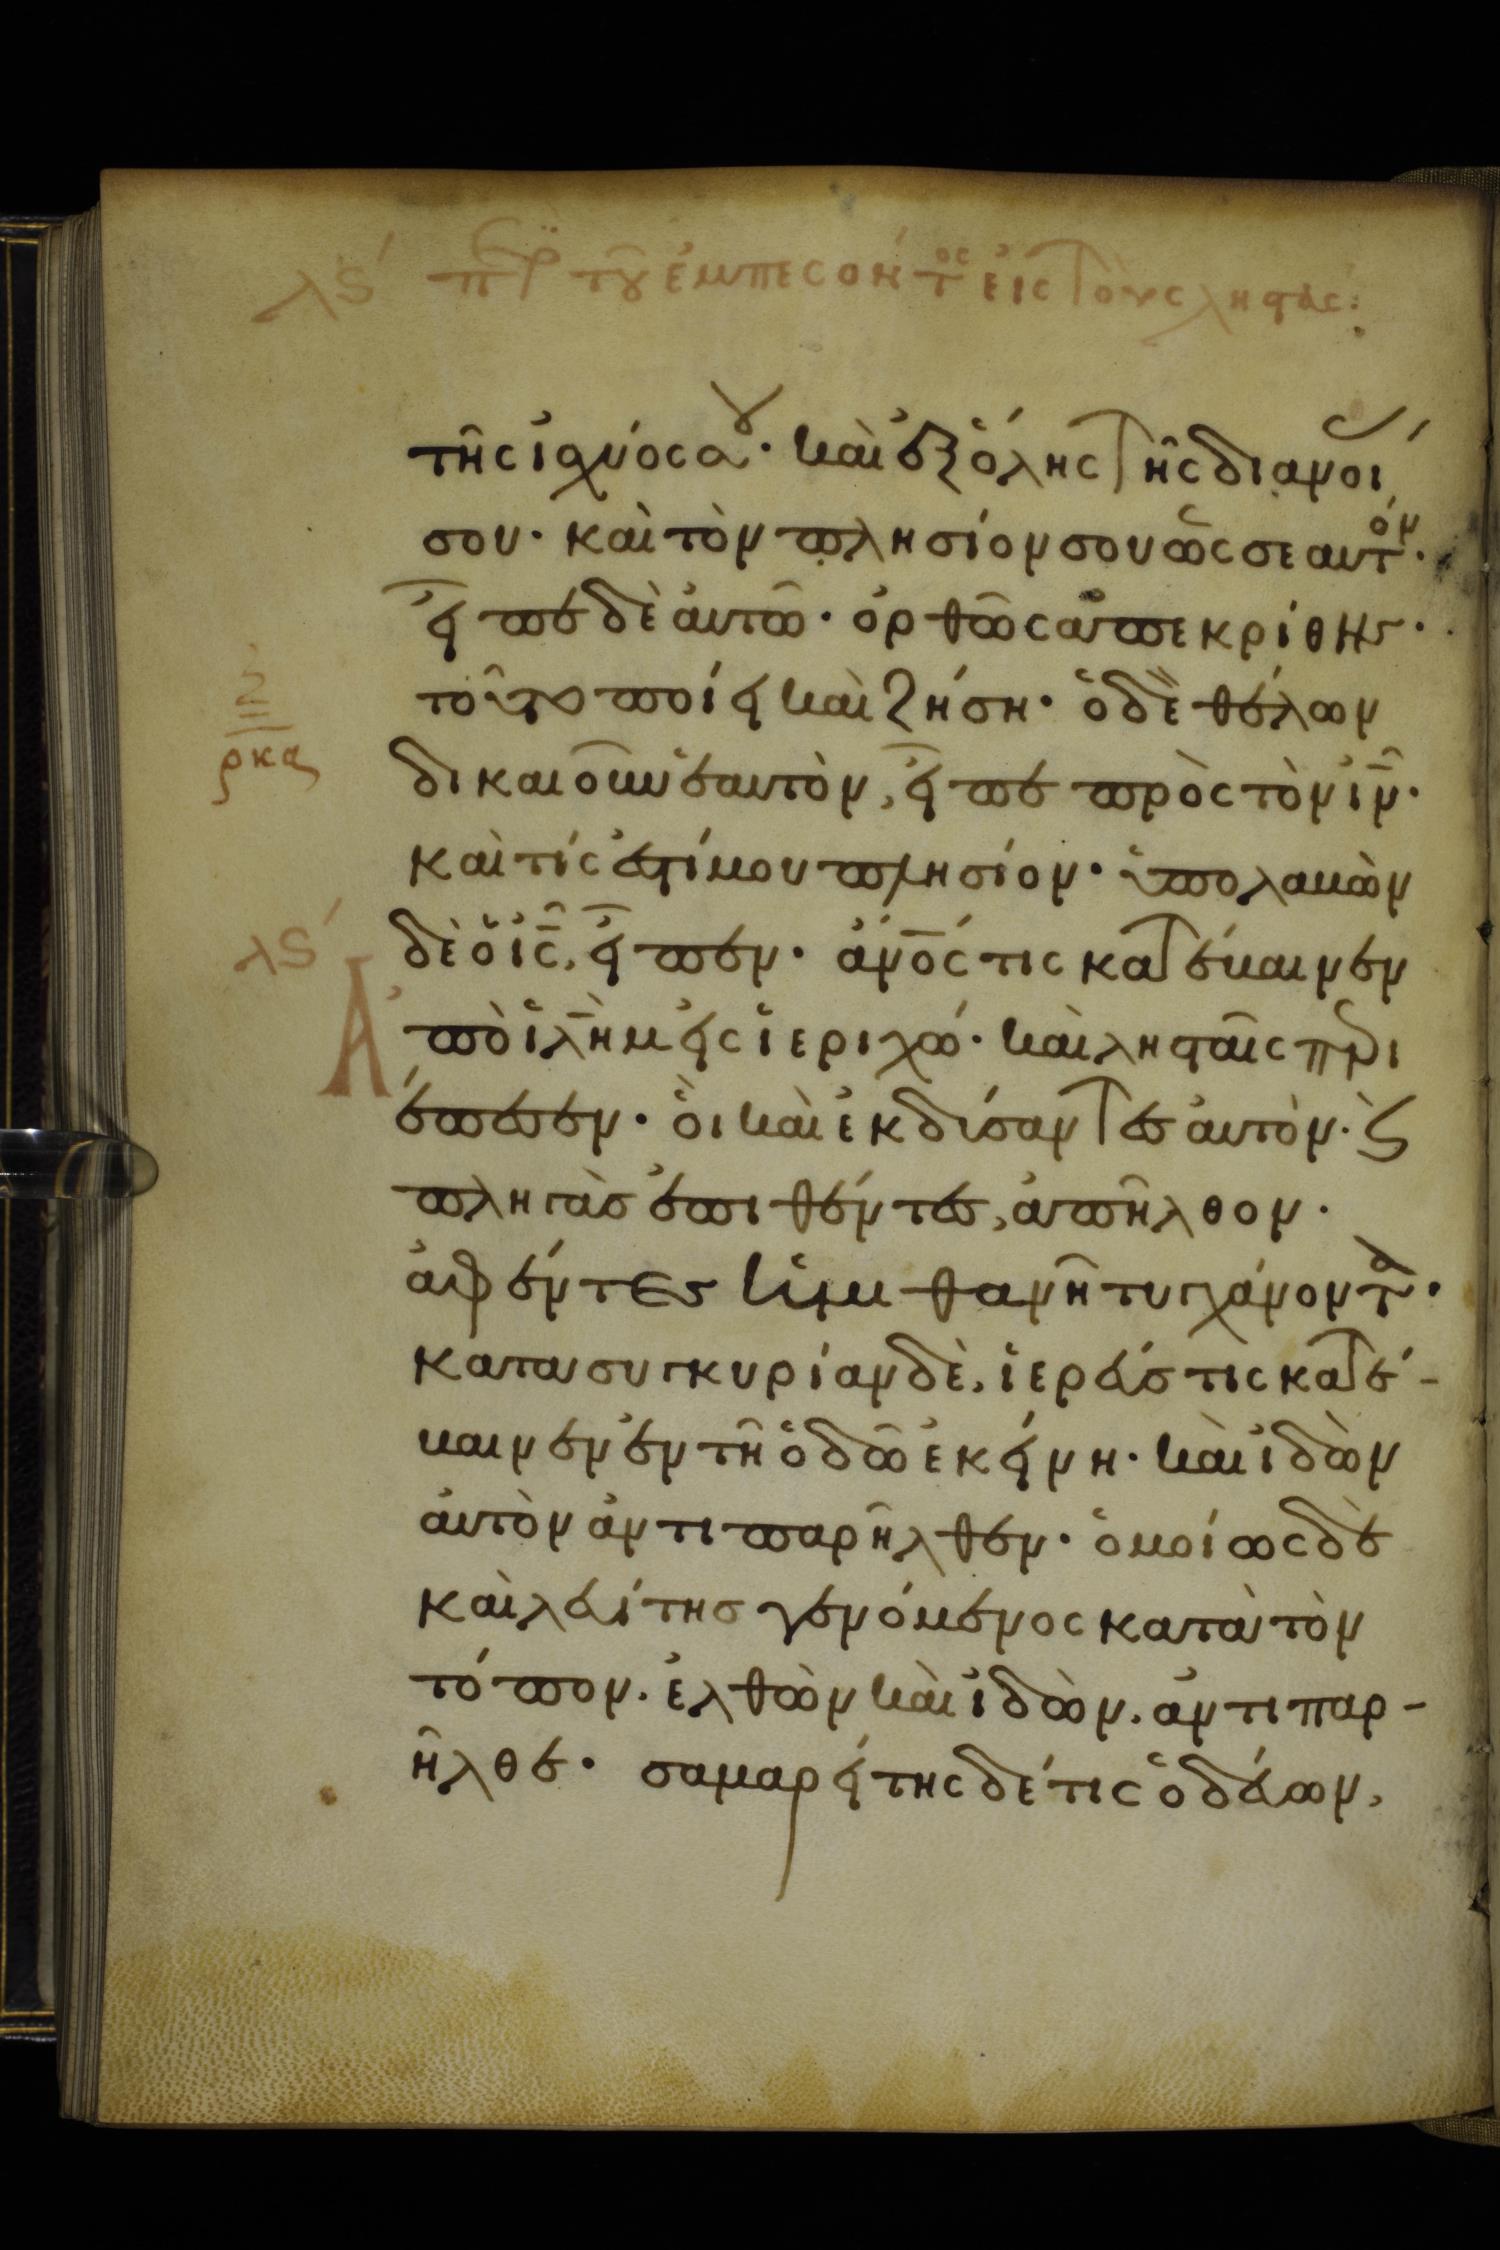 λϛʹ πρ τοῦ ἐμπεσόντος εἰς τοὺς ληστάς:
τῆς ἰσχύος σου· καὶ ἐξ ὅλης τῆς διανοί
σου· καὶ τὸν πλησίον σου ὡς σεαυτόν·
εἶπε δὲ αὐτῶ· ὀρθῶς ἀπεκρίθης·
τοῦτο ποίει καὶ ζήση· ὁ δὲ θέλων
ρκα
δικαιοῦν ἑαυτὸν, εἶπε πρὸς τὸν ἰν·
καὶ τίς ἐστί μου πλησίον· ὑπολαβὼν
λϛʹ
δὲ ὁ ἰς, εἶπεν· ἀνός τις κατέβαινεν
Ἀπὸ ἰλὴμ εἰς ἱεριχώ· καὶ λησταῖς περι
έπεσεν· οἳ καὶ ἐκδύσαντες αὐτὸν· ϛ
πληγὰς ἐπιθέντες, ἀπῆλθον·
ἀφέντες ἡμιθανῆ τυγχάνοντα·
κατα συγκυρίαν δὲ, ἱερεύς τις κατέ-
βαινεν ἐν τῆ ὁδῶ ἐκείνη· καὶ ἰδὼν
αὐτὸν ἀντιπαρῆλθεν· ὁμοίως δὲ
καὶ λευίτης γενόμενος κατὰ τὸν
τόπον. ἐλθὼν καὶ ἰδὼν. ἀντιπαρ-
ῆλθε· σαμαρείτης δέ τις ὁδεύων,